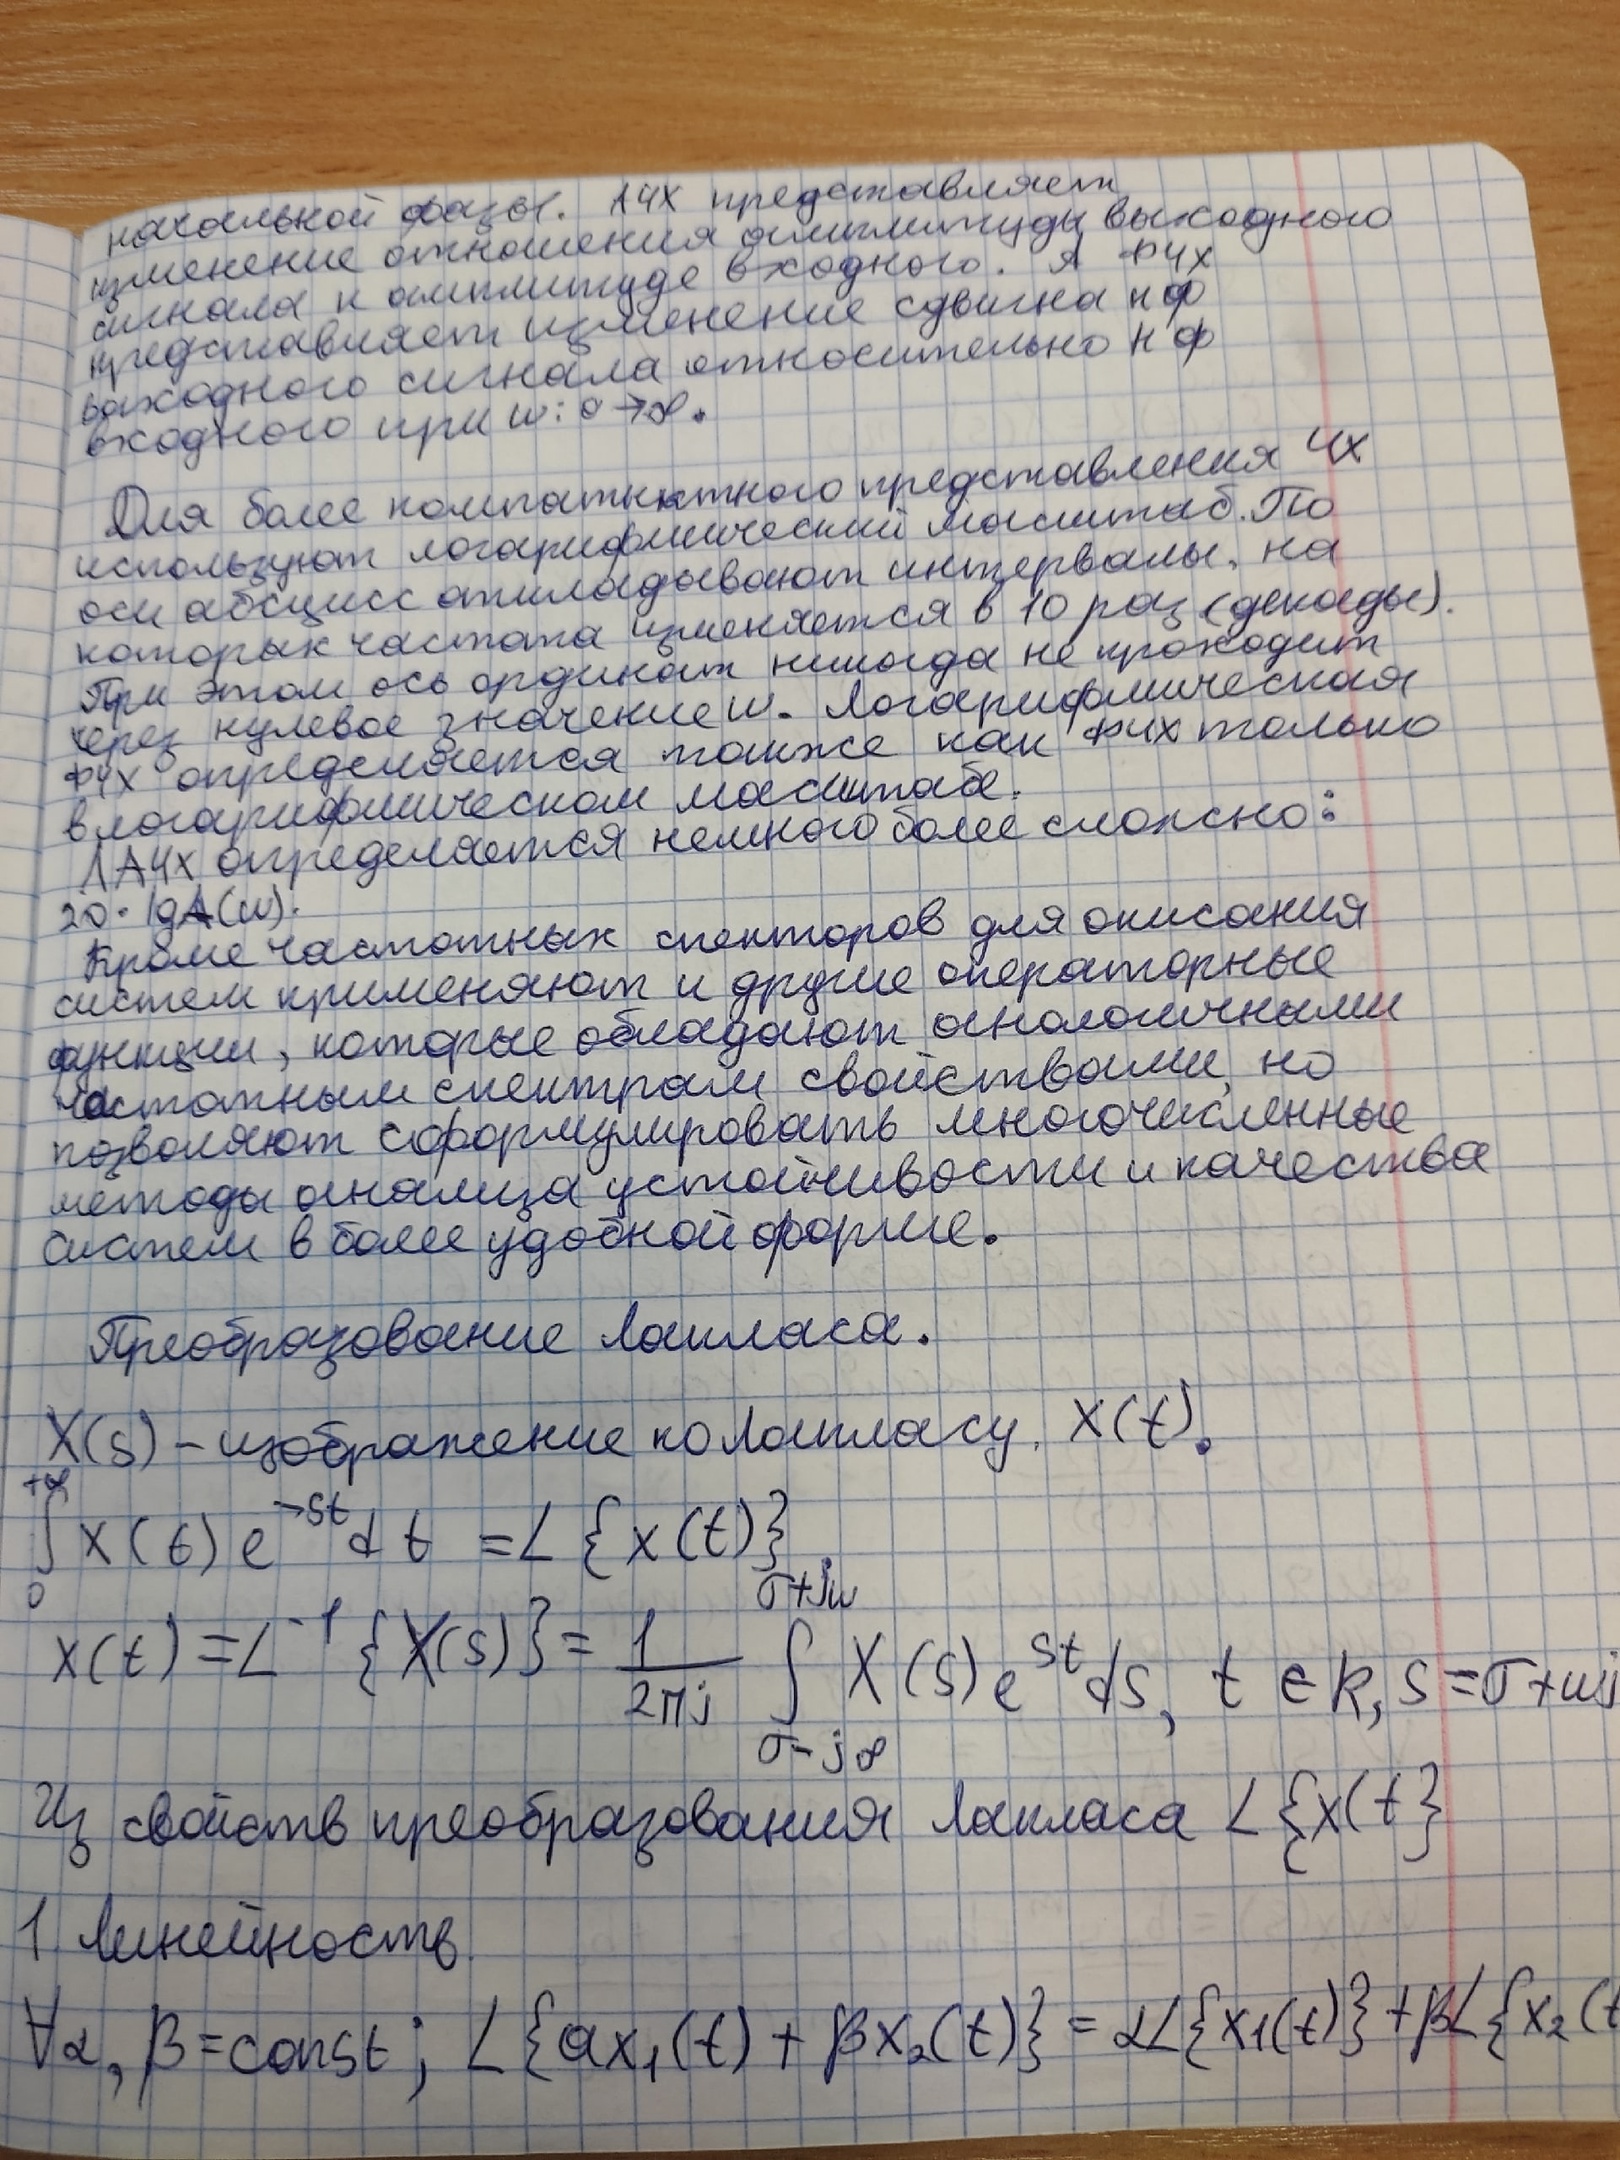 начальной фазы. АЧХ представляет
изменение отношения амплитуды выходного
сигнала к амплитуде входного. А ФЧХ
представляет изменение сдвига НФ
выходного сигнала относительно НФ
входного при w: 0→∞.
Для более компактного представления ЧХ
используют логарифмический масштаб. По
оси абсцисс откладывают интервалы, на
которых частота изменяется в 10 раз (декады).
При этом ось ординат никогда не проходит
через нулевое значение w. Логарифмическая
ФЧХ определяется также как ФЧХ только
в логарифмическом масштабе.
ЛАЧХ определяется немного более сложно:
20·lgA(w).
Кроме частотных спекторов для описания
систем применяют и другие операторные
функции, которые обладают аналогичными
частотным спектрам свойствами, но
позволяют сформулировать многочисленные
методы анализа устойчивости и качества
систем в более удобной форме.
Преобразование Лапласа.
X(s) – изображение по Лапласу. X(t).
∫₀^{+∞} x(t) e^{-st} dt = L {x(t)}
x(t) = L^{-1} {X(s)} = 1/(2πj) ∫_{σ-j∞}^{σ+jω} X(s) e^{st} ds, t ∈ R, s = σ + ωj
Из свойств преобразования Лапласа L{x(t}
1. Линейность.
∀α, β = const; L{ax₁(t) + βx₂(t)} = αL{x₁(t)} + βL{x₂(t